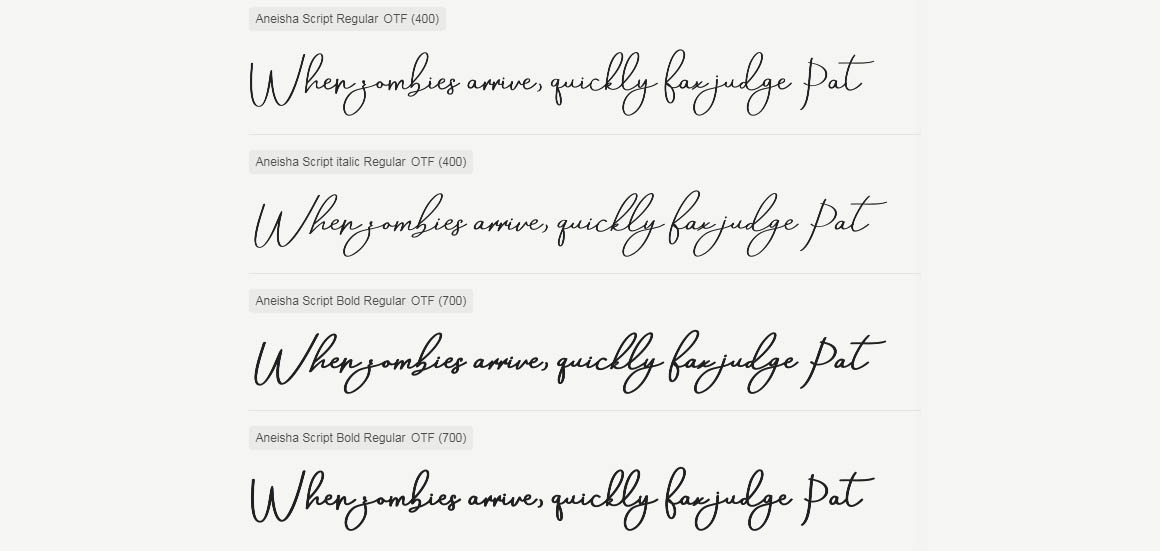 Aneisha Script Regular OTF (400)
When zombies arrive, quickly fax judge Pat
Aneisha Script italic Regular OTF (400)
When zombies arrive, quickly fax judge Pat
Aneisha Script Bold Regular OTF (700)
When zombies arrive, quickly fax judge Pat
Aneisha Script Bold Regular OTF (700)
When zombies arrive, quickly fax judge Pat